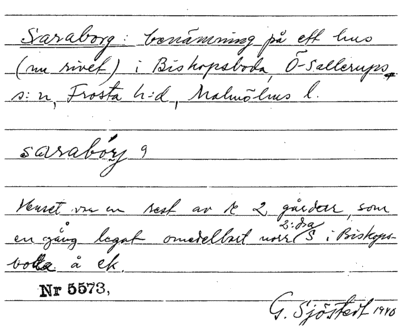 Saraborg: benämning på ett hus
(nu rivet) i Biskopsboda, Ö-Sallerups
s:n, Frosta h:d, Malmöhus l.
saraborj
Huset var en rest av de 2 gårdar, som
2:dra
en gång legat omedelbart norr i Biskops-
boda å ek.
Nr 5573,
G. Sjöstedt 1940